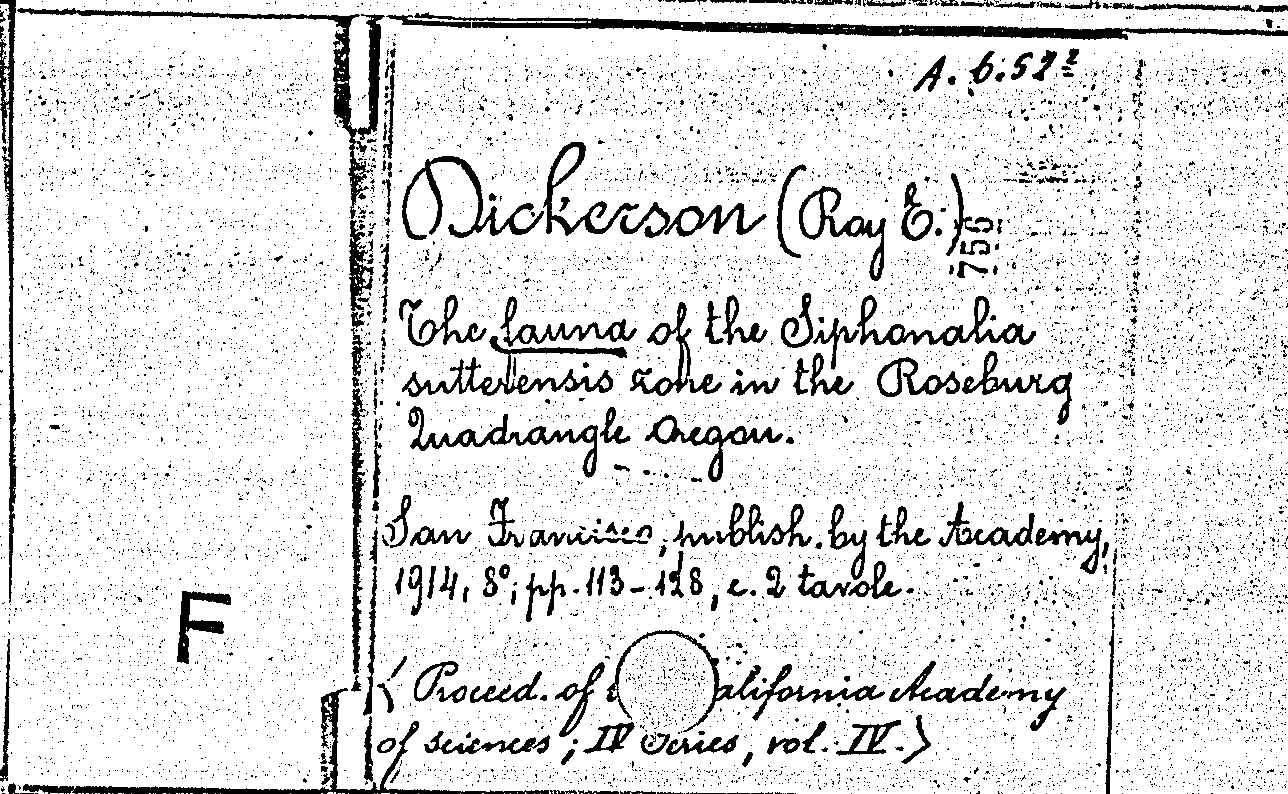 A. 6. 52²
Dickerson (Ray E.)
756
The fauna of the Siphonalia
sutterensis zone in the Roseburg
Quadrangle Oregon.
San Francisco, publish. by the Academy,
1914, 8°; pp. 113-128, c. 2 tavole.
F
( Proceed. of alifornia Academy
of sciences; IV Series, vol. IV.)